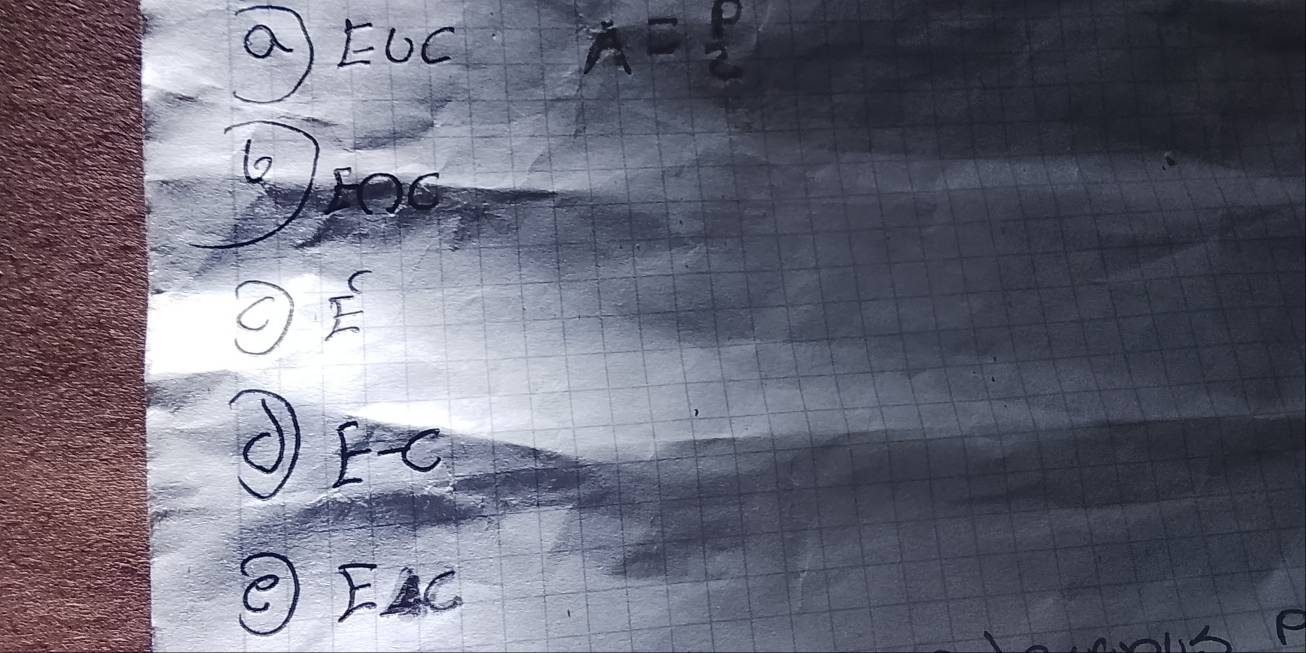 a) E∪C A = P/2
b) E∩C
c) Eᶜ
d) E-C
e) EΔC
P